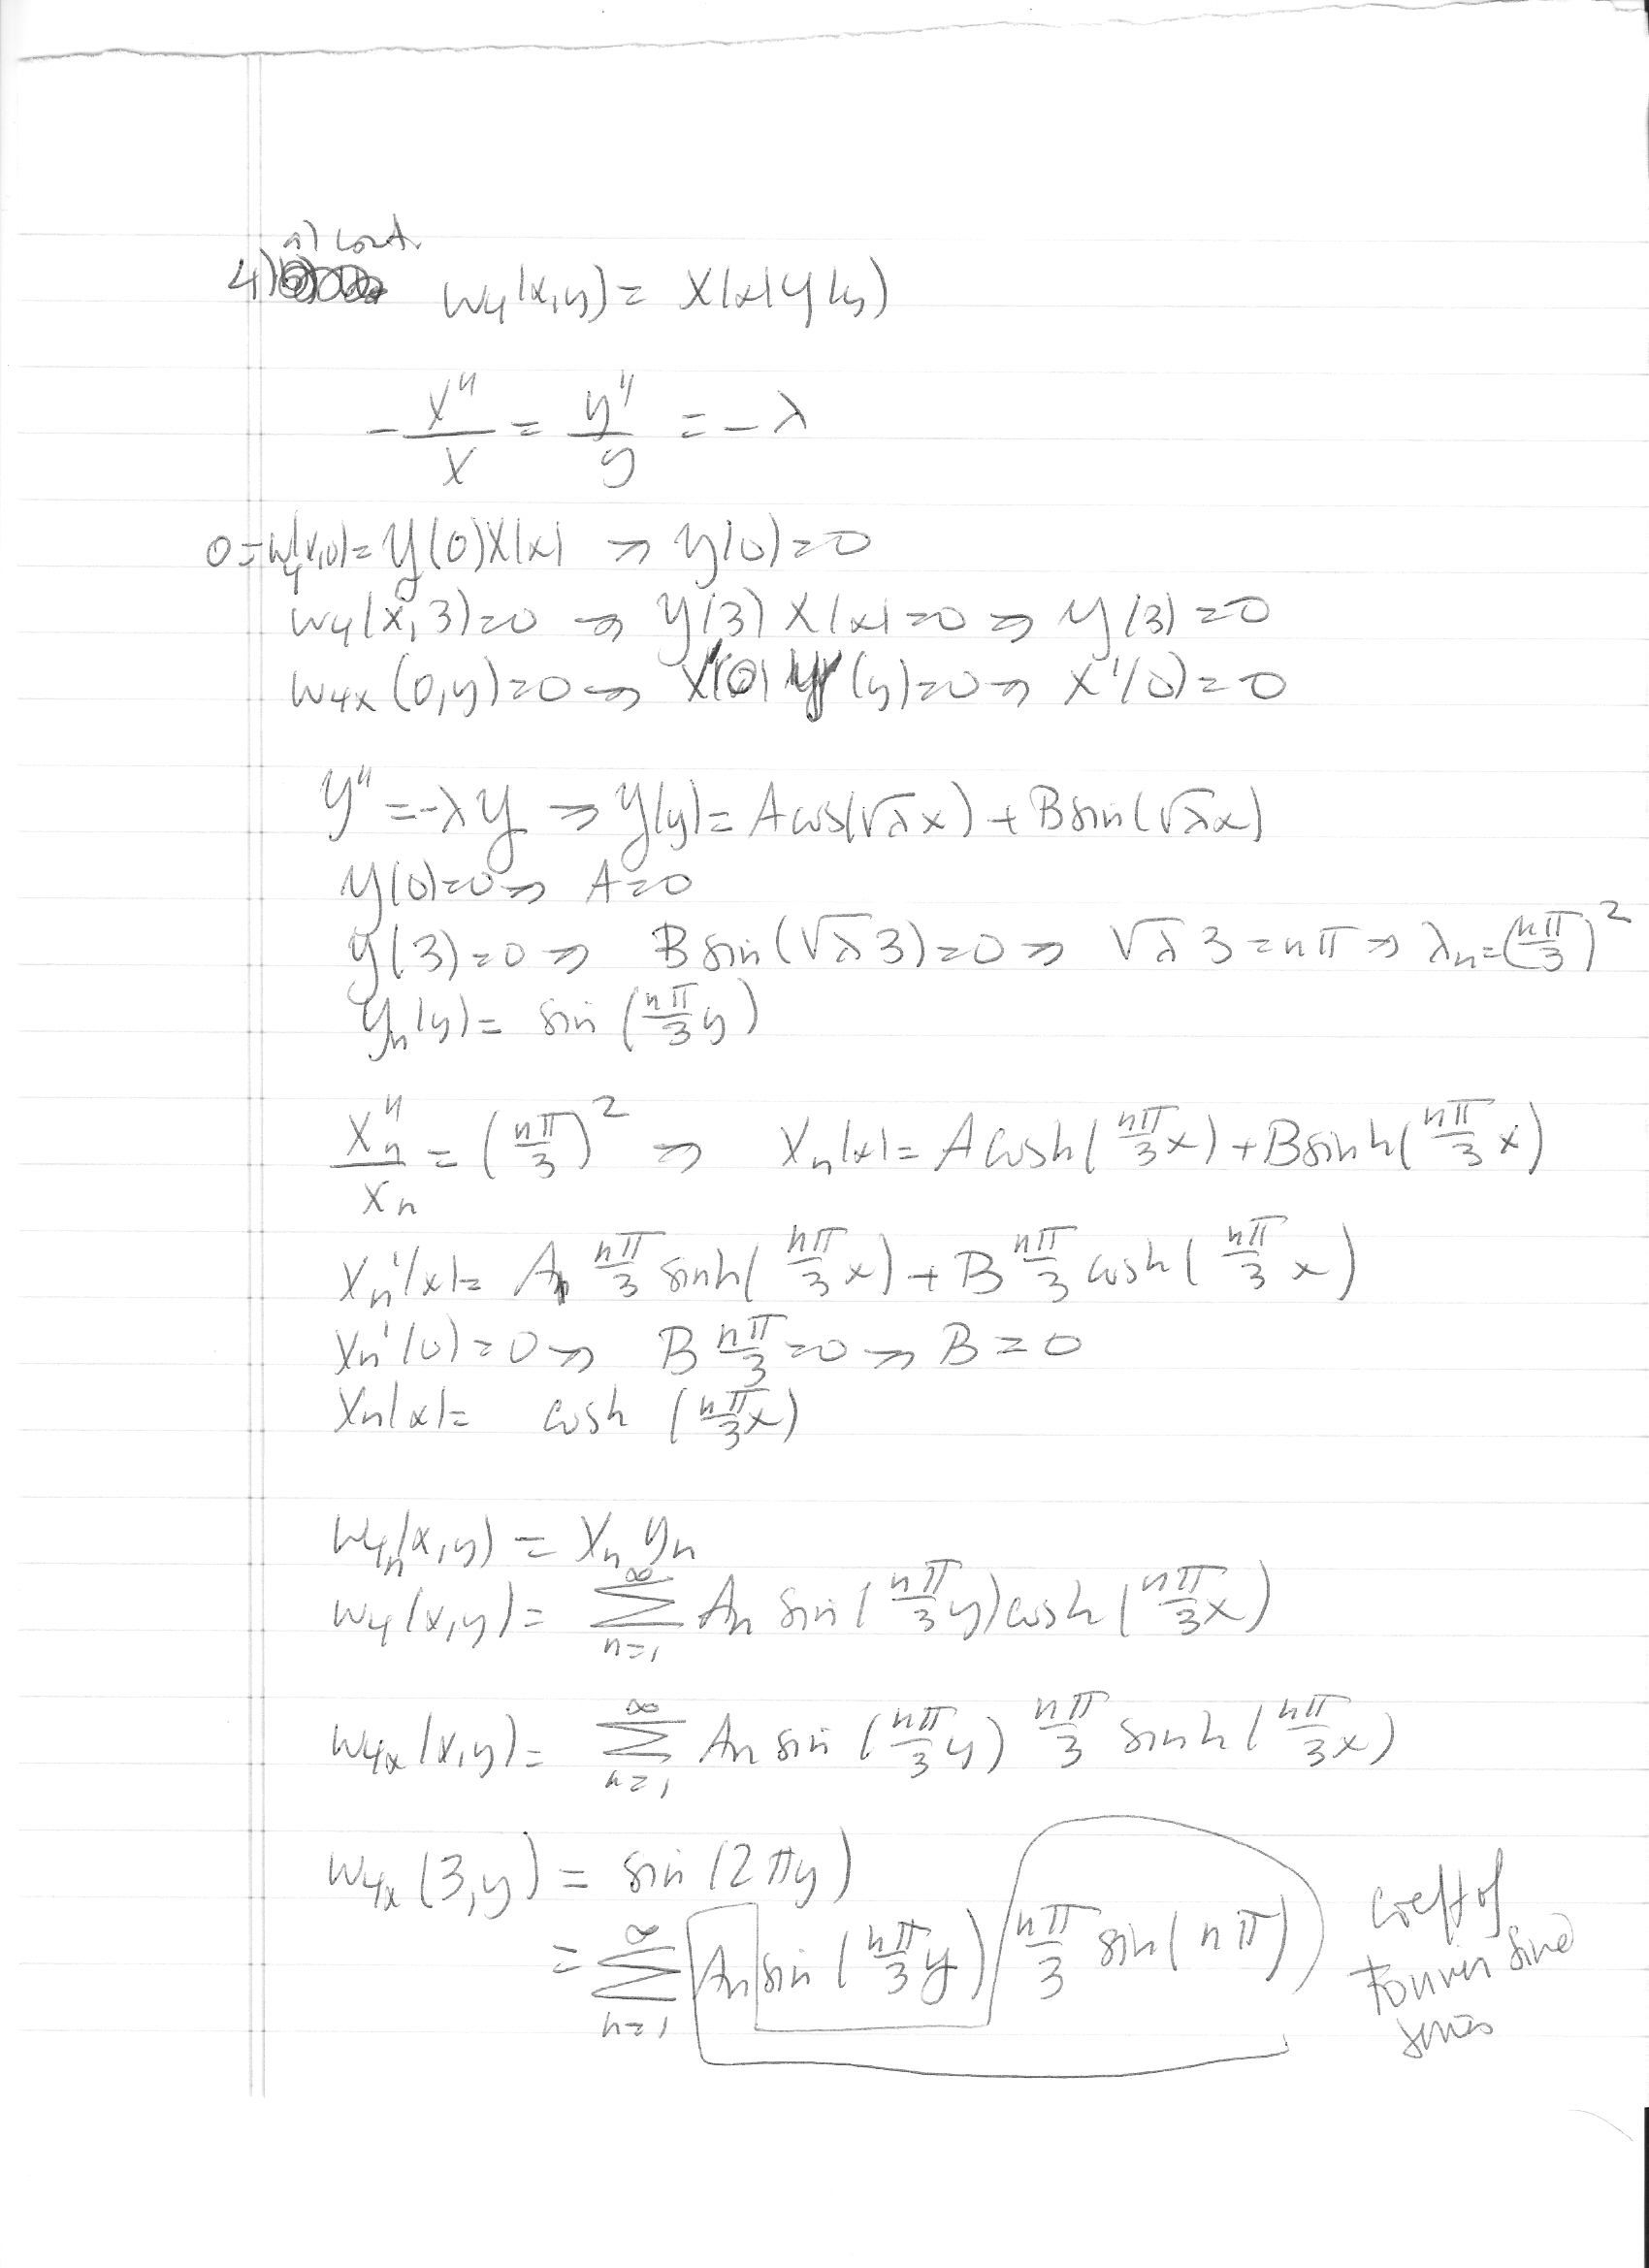 a) cont.
4) w₄(x,y) = X(x)Y(y)
-X''/X = Y''/Y = -λ
0 = w₄(x,0) = Y(0)X(x) ⇒ Y(0) = 0
w₄(x,3) = 0 ⇒ Y(3)X(x) = 0 ⇒ Y(3) = 0
w₄ₓ(0,y) = 0 ⇒ X'(0)Y(y) = 0 ⇒ X'(0) = 0
Y'' = -λY ⇒ Y(y) = A cos(√λx) + B sin(√λx)
Y(0) = 0 ⇒ A = 0
Y(3) = 0 ⇒ B sin(√λ3) = 0 ⇒ √λ3 = nπ ⇒ λₙ = (nπ/3)²
Yₙ(y) = sin(nπ/3 y)
Xₙ''/Xₙ = (nπ/3)² ⇒ Xₙ(x) = A cosh(nπ/3 x) + B sinh(nπ/3 x)
Xₙ'(x) = A nπ/3 sinh(nπ/3 x) + B nπ/3 cosh(nπ/3 x)
Xₙ'(0) = 0 ⇒ B nπ/3 = 0 ⇒ B = 0
Xₙ(x) = cosh(nπ/3 x)
w₄ₙ(x,y) = XₙYₙ
w₄(x,y) = ∑_{n=1}^{∞} Aₙ sin(nπ/3 y) cosh(nπ/3 x)
w₄ₓ(x,y) = ∑_{n=1}^{∞} Aₙ sin(nπ/3 y) nπ/3 sinh(nπ/3 x)
w₄ₓ(3,y) = sin(2πy)
= ∑_{n=1}^{∞} Aₙ sin(nπ/3 y) nπ/3 sin(nπ)
coeff of
Fourier sine
series